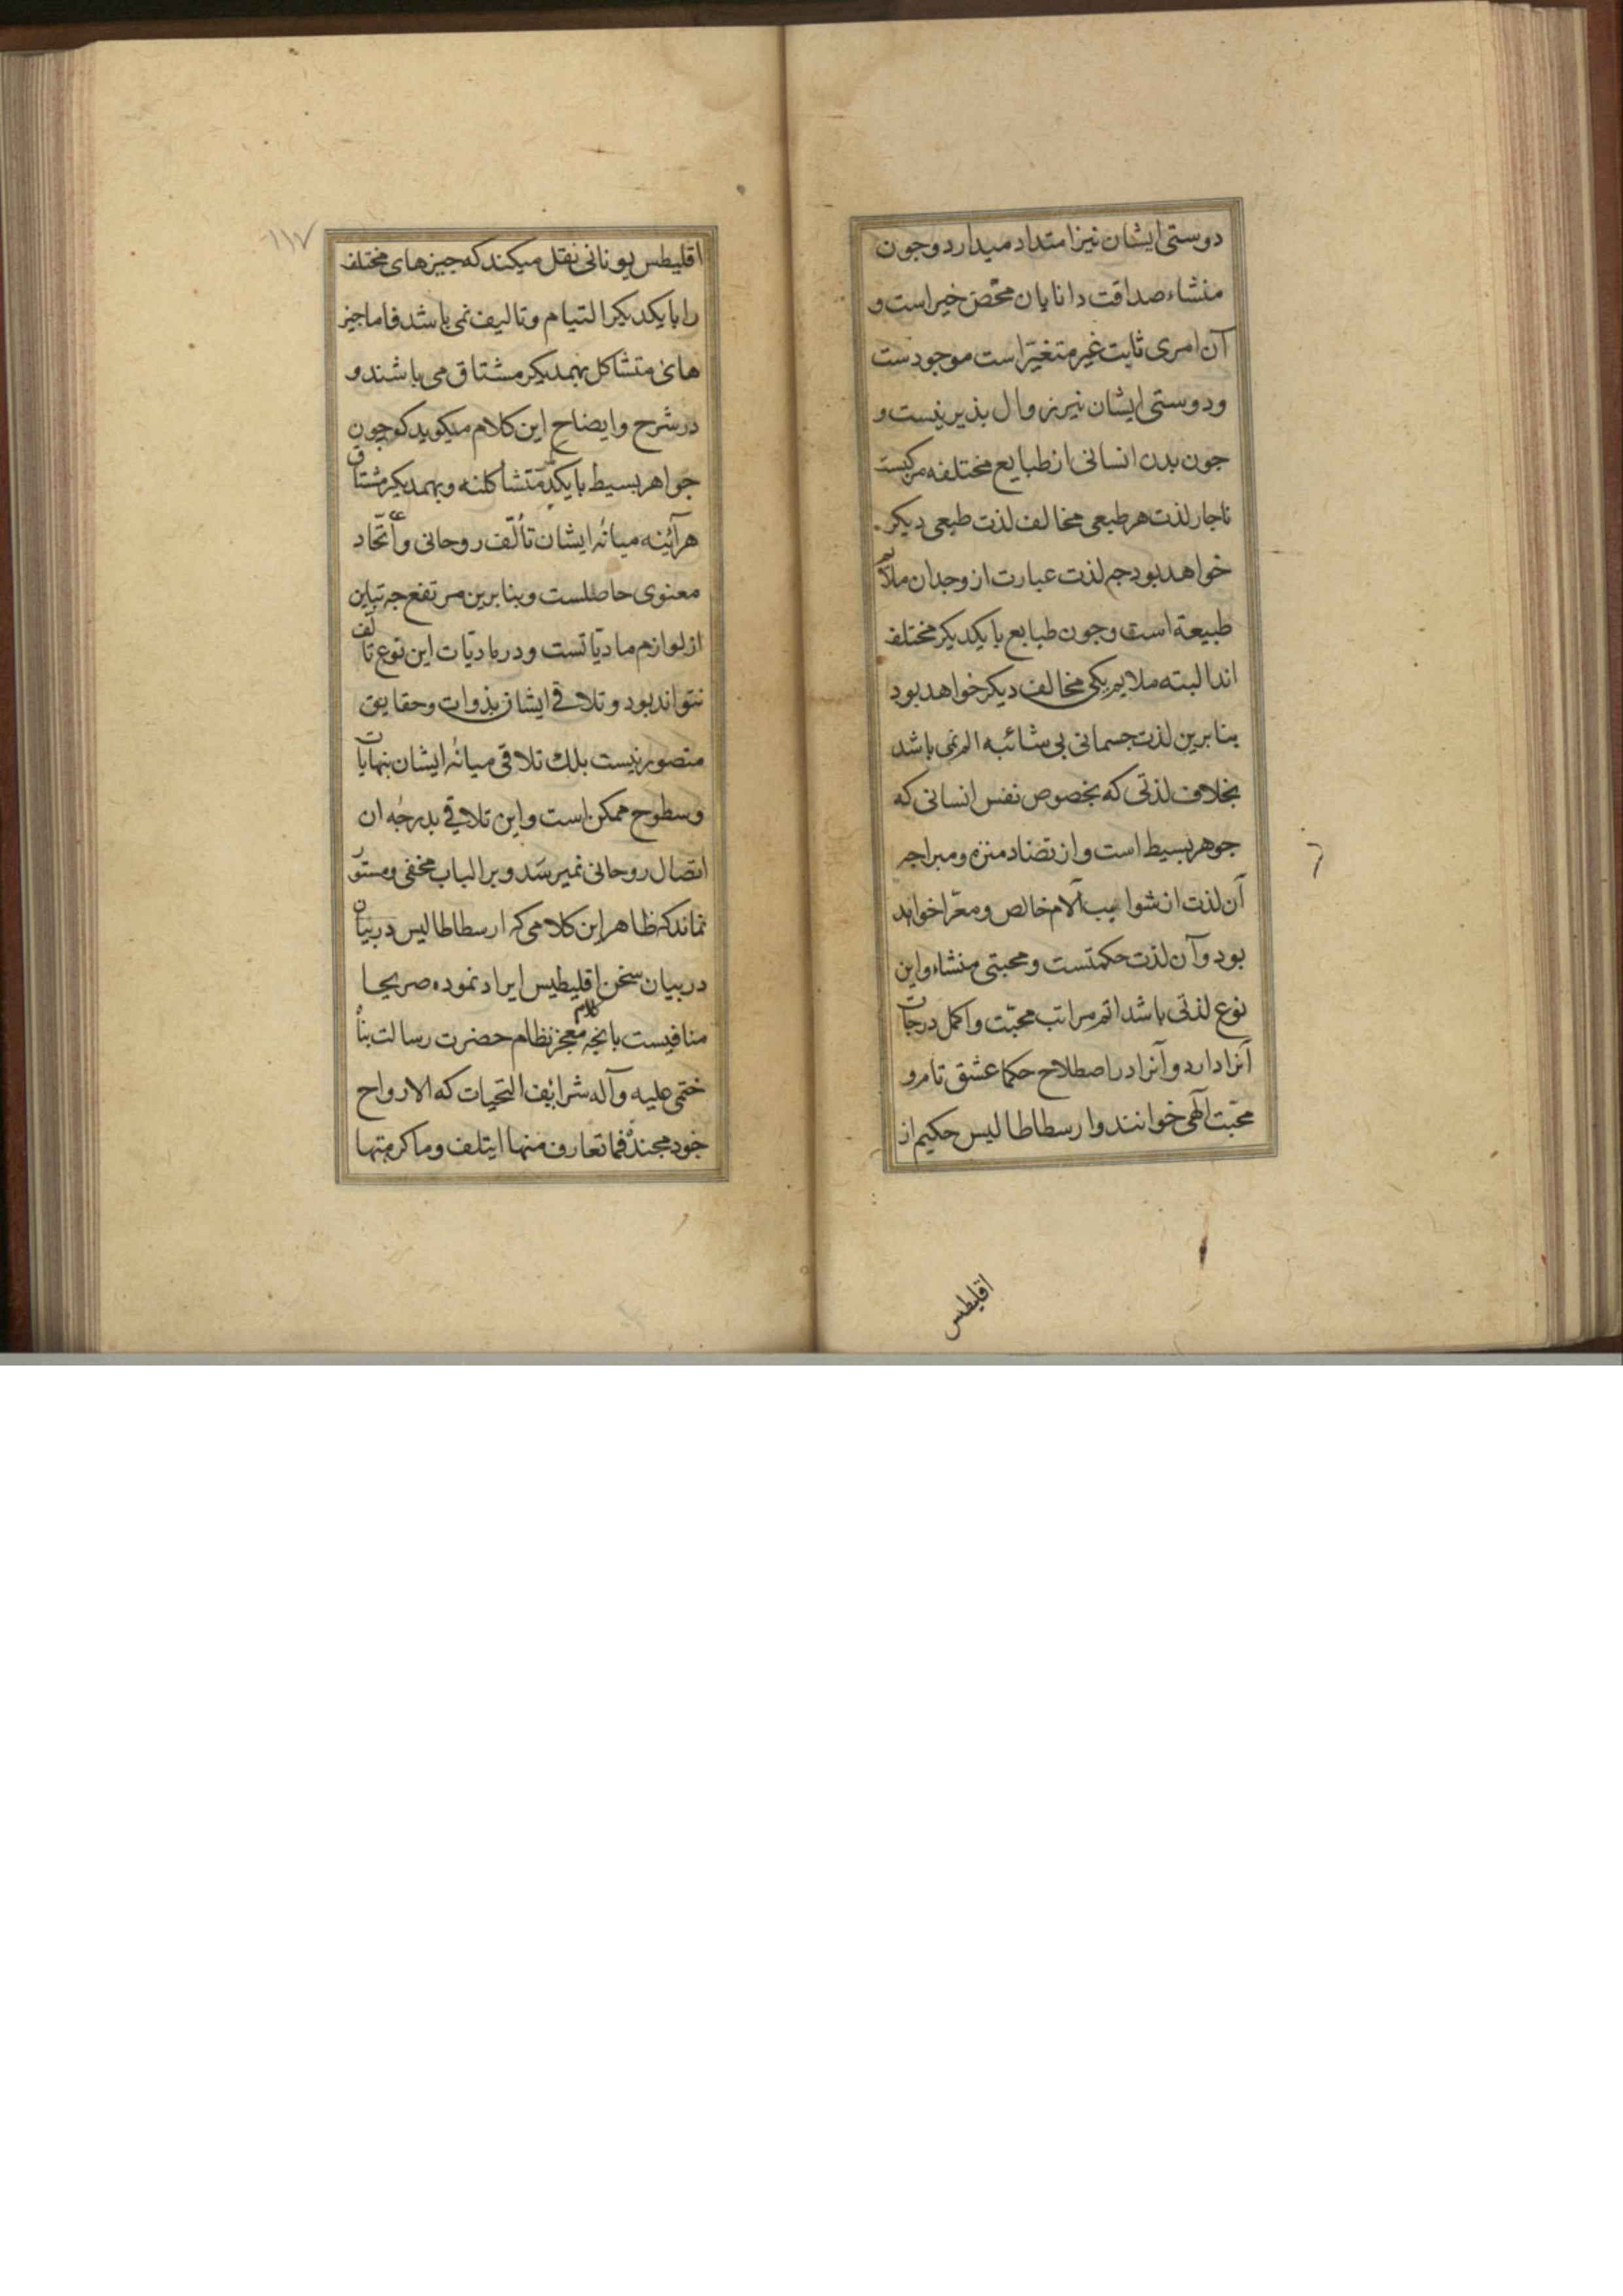 دوستی ایشان نیز امتداد میدارد وجون
منشاء صداقت دانایان محض خیر است و
آن امری ثابت غیر متغیّر است موجودست
ودوستی ایشان نیز زوال بذیر نیست و
جون بدن انسانی از طبایع مختلفه مرکبست
ناجار لذت هر طبعی مخالف لذت طبعی دیکر
خواهد بود جه لذت عبارت از وجدان ملایم
طبیعة است وجون طبایع با یکدیکر مختلف
اند البته ملایم یکی مخالف دیکر خواهد بود
بنابرین لذت جسمانی بی شائبه الم نمی باشد
بخلاف لذتی که بخصوص نفس انسانی که
جوهر بسیط است و از تضاد منزه ومبرا جه
آن لذت از شوایب آلام خالص ومعرّا خواهد
بود وآن لذت حکمتست و محبتی منشاء واین
نوع لذتی باشد اتم مراتب محبّت واکمل درجات
آنرا دارد وآنرا در اصطلاح حکما عشق تام و
محبّت آلهی خوانند وارسطاطالیس حکیم از
اقلیطس
۱۱۷
اقلیطس یونانی نقل میکند که جیزهای مختلف
را با یکدیکر التیام وتالیف نمی باشد فاما جیز
های متشاکل بهمدیکر مشتاق می باشند و
در شرح وایضاح این کلام میکوید کو جون
جواهر بسیط با یکدیکر متشاکلند وبهمدیکر مشتاق
هرآئینه میانهٔ ایشان تألّف روحانی واتّحاد
معنوی حاصلست وبنابرین مرتفع جه تباین
از لوازم مادیاتست ودر مادیات این نوع تألف
نتواند بود وتلاقی ایشان بذوات وحقایق
متصور نیست بلک تلاقی میانهٔ ایشان بنهایات
وسطوح ممکن است واین تلاقی بدرجهٔ ان
اتصال روحانی نمیرسد وبر الباب مخفی ومستور
نماند که ظاهر این کلامی که ارسطاطالیس در بیان
در بیان سخن اقلیطیس ایراد نموده صریحا
منافیست بانجه کلام معجز نظام حضرت رسالت بناه
ختمی علیه وآله شرائف التحیات که الارواح
خود مجندة فما تعارف منها ایتلف وما کر منها